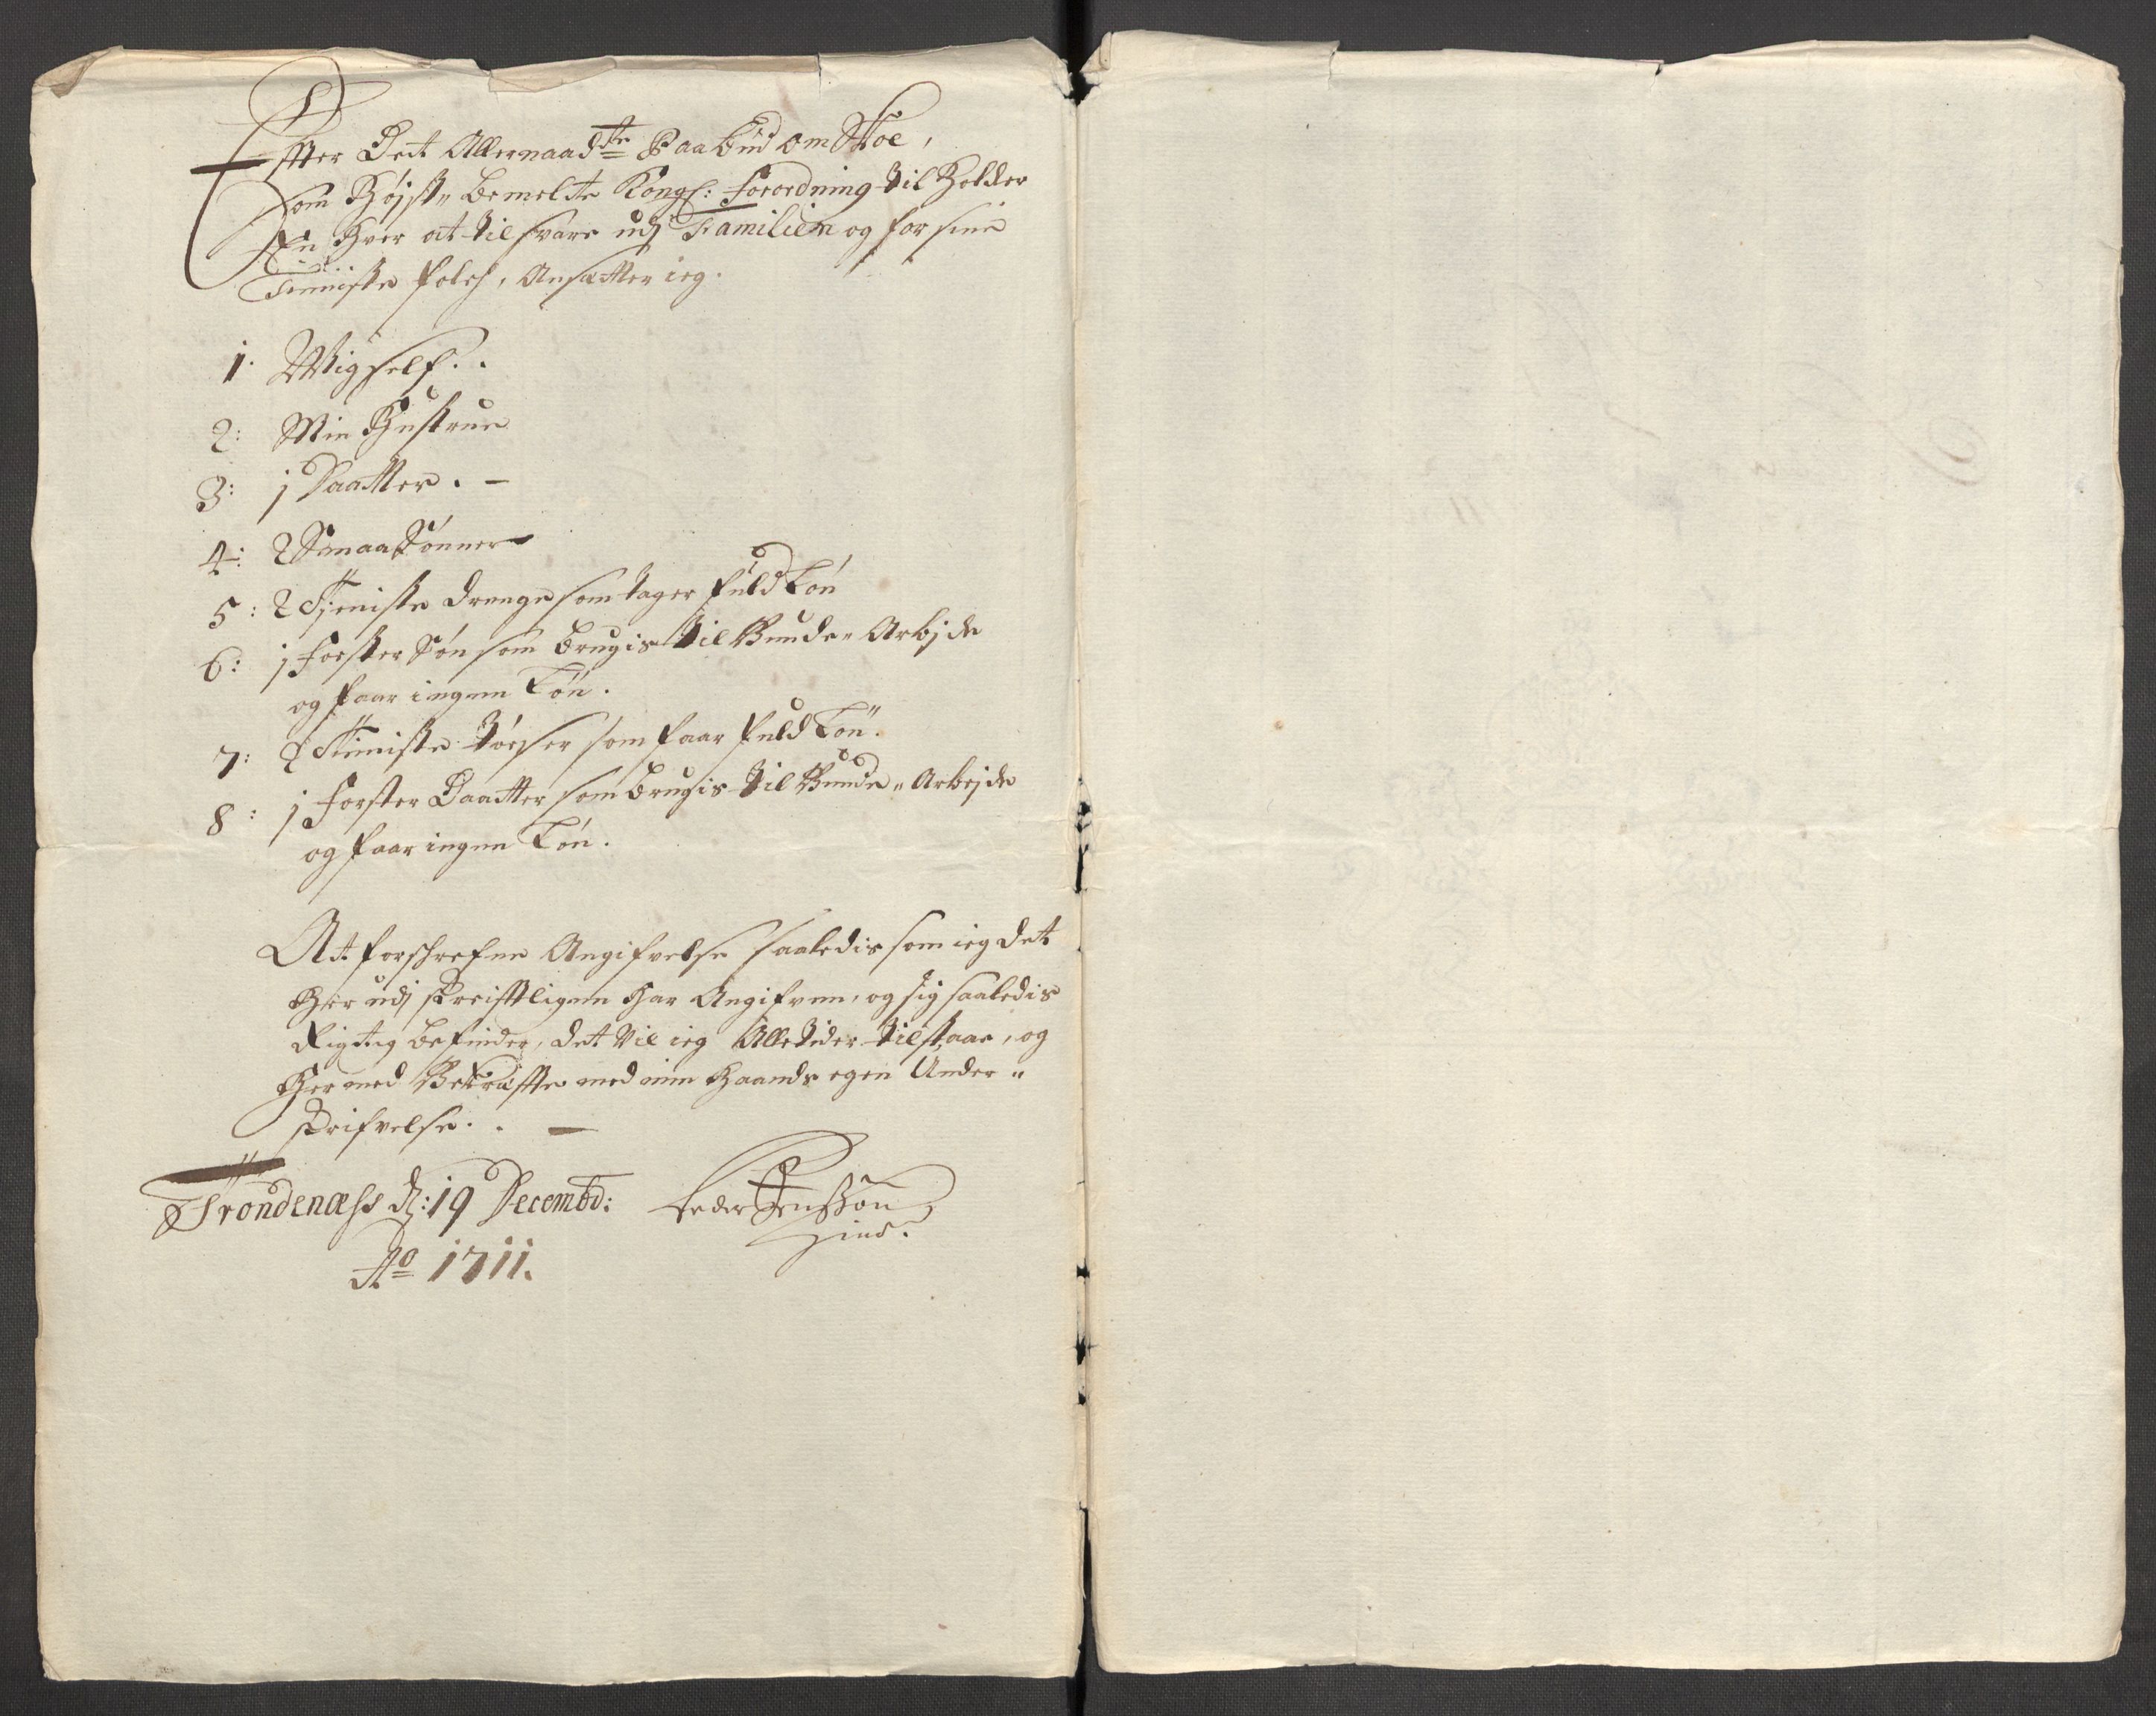 Effter Dect Allernaadste Paabud om Skoe,
som Højst bemelte Kongl: Forordning tilholder
En hver at tilsvare udj Familien og for sine
Tienniste folch, Ansætter ieg.
1. Migself..
2: Min Hustrue
3: 1 Daatter. -
4: 2 Smaa Sønner
5: 2 Tjeniste Drenge som tager fuld Løn
6: 1 Foster Søn som brugis til Bunde- Arbjde
og faar ingen Løn.
7: 2 Tieniste-Tøeser som faar fuld Løn.
8: 1 Foster Daatter som brugis til Bunde- Arbejde
og faar ingen Løn.
At forschrefne Angifvelse saaledis som ieg det
Her udj skreifftligen har Angifven, og sig saaledis
Rigtig befinder, det vil ieg Alletider tilstaae, og
Hermed Bekræffte med min haands egen Under-
skrifvelse. . -
Trondenæss d: 19 Decembr:
Peder Jenssøn
Hind.
Ao 1711.